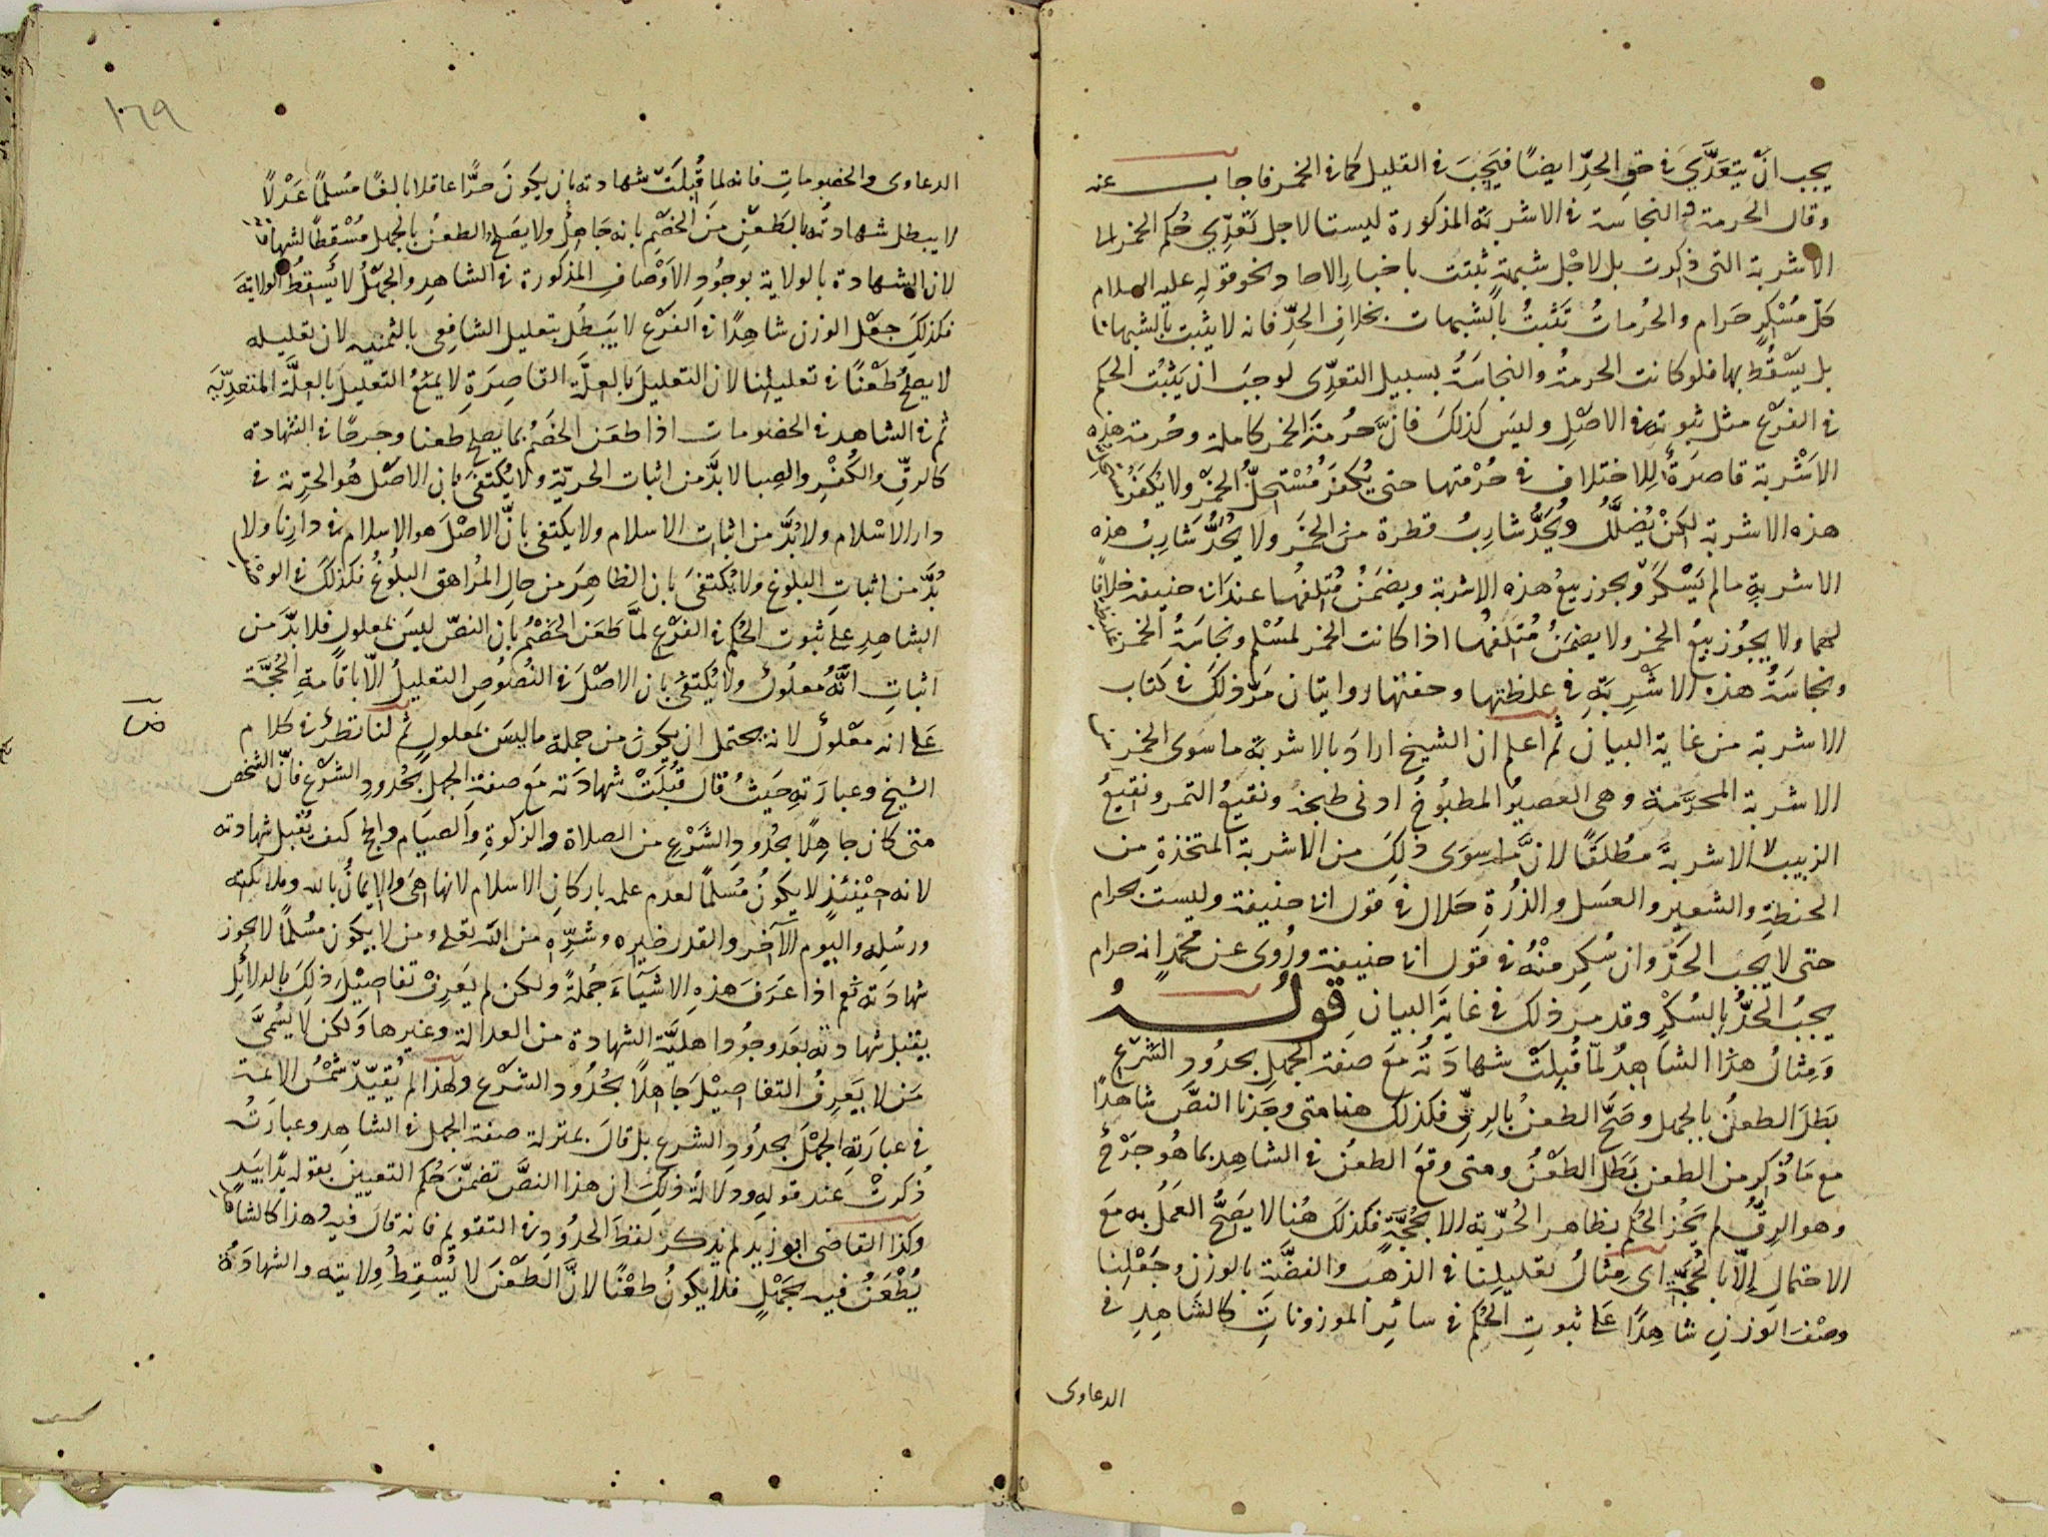 يجب انْ يتعَدَّي في حق الحدِّ ايضًا فيَجبَ في القليل كما في الخمر فاجاب عنه
وقال الحرمة والنجاسة في الاشربَة المذكورة ليستا لاجل تَعَدِّي حُكم الخمر الى
الاشربة التي ذكرت بل لاجْل شبهةٍ ثبتت باخبار الاحاد نحو قوله عليه السلام
كلّ مُسْكرٍ حَرام والحُرماتُ تَثبتُ بالشبهات بخلافِ الحدِّ فانه لا يثبت بالشبهات
بل يسْقُط بها فلو كانت الحرمةُ والنجاسَةُ بسبيل التعدّى لوجبَ ان يَثبُت الحكم
في الفرْع مثل ثبوته في الاصْلِ وليسَ كذلكَ فانَّ حُرمةَ الخمر كاملة وحُرمة هذه
الاشْربة قاصرَةٌ للاختلاف في حُرْمتها حتى يُكفرَ مُسْتحِلُّ الخَمْر ولا يُكفر مستحل
هذه الاشربة لكنْ يُضلَّلُ ويُحَدُّ شاربُ قطرة منَ الخَمر ولا يُحَدُّ شَاربُ هذه
الاشربةِ مالم يَسْكرْ ويجوز بيعُ هذه الاشربة ويضمَنُ مُتْلفهُا عندَ ابى حنيفة خلافًا
لهما ولا يجُوز بيعُ الخمر ولا يضمَنُ مُتلفهُا اذا كانت الخمر لمسْلم ونجاسَةُ الخمر غليظة
ونجاسَةُ هذه الاشْرِبَةِ في غلظتها وخفتها روايتان مرّ ذلكَ في كتاب
الاشربة من غاية البيان ثم اعلم ان الشيخ ارادَ بالاشربَة ما سَوى الخمر
الاشربة المحرَّمة وهى العصيرُ المطبُوخُ ادنى طبخة ونقيعُ التمر ونقيعُ
الزبيب لا الاشربةَ مطْلقًا لانَّ ما سِوَى ذلِكَ من الاشربة المتخذةِ من
الحنطةِ والشعير والعسَل والذُرةِ حَلال في قول ابى حنيفة وليست بحرام
حتى لا يَجبَ الحدّ وان سُكِر منْهُ في قول ابى حنيفة ورُوى عن محمّدٍ انه حرام
يجبُ الحدُّ بالسُكْرِ وقد مر ذلك في غاية البيان قولُهُ
وَمِثالُ هذا الشاهِدُ لمّا قُبِلتْ شهادَتُه مَعَ صفة الجهلِ بحدُودِ الشرْعِ
بَطَلَ الطعنُ بالجهل وصَحَّ الطعنُ بالرقِّ فكذلك هنا متى وجَدْنا النصَّ شاهدًا
مع مَا ذُكر من الطعن بَطَلَ الطعْنُ ومتى وقعَ الطعنُ في الشاهِد بما هُو جَرْحٌ
وهو الرِقُّ لم يَجُز الحُكم بظاهر الحُرّية الا بحُجَّةٍ فكذلكَ هُنا لا يَصحُّ العَمَلُ به مَعَ
الاحتمالِ إلّا بالحُجّة اى مِثالُ تعليلِنا في الذهب والفضَّة بالوزن وجَعْلِنا
وصْفَ الوَزنِ شاهِدًا عَلى ثبوتِ الحُكم في سائِر الموزوناتِ كالشاهِدِ في
الدعاوى
١٠٦٩
الدعاوى والخصُوماتِ فانه لما قُبلَت شهادته بان يكونَ حرًّا عاقلا بالغًا مُسلمًا عَدْلًا
لا يبطل شهادتُه بالطَعْن منَ الخَصْم بانه جَاهلٌ ولا يَصحُ الطعنُ بالجهل مُسْقطًا لشهادته
لان الشهادة بالولاية بوجُودِ الاوْصَاف المذكورة في الشاهِد والجهْلُ لا يُسقِطُ الولايَة
فكذلِكَ جعْل الوزن شاهِدًا في الفرْع لا يَبطُلُ بتعليل الشافِعى بالثمنيه لان تعليله
لا يصلحُ طَعْنًا في تعليلنا لان التعليلَ بالعِلَّة القاصِرَة لا يمنَعُ التعليلَ بالعِلَّة المتعدِّيَة
ثم في الشاهد في الخصُومات اذا طعَن الخَصْمُ بما يصلح طعنا وجَرحًا في الشهادة
كالرقِّ والكُفْر والصِبا لا بدَّ من اثبات الحريّة ولا يُكتفى بان الاصْل هُو الحرّية في
دار الاسْلام ولا بُدَّ من اثبات الاسلام ولا يكتفى بانّ الاصْلَ هو الاسلام في دارنا ولا
بُدَّ من اثباتِ البلوغ ولا يُكتفى بان الظاهِرَ من حال المُراهق البلُوغُ فكذلكَ في الوصْف
الشاهِد على ثبوت الحُكم في الفرْع لمّا طَعَن الخَصْمُ بان النصّ ليسَ بمعلولٍ فلا بدَّ من
اثباتِ انَّهُ معلُولٌ ولا يُكتفى بان الاصْلَ في النُصُوصِ التعليلُ إلّا باقامةِ الحُجَّة
عَلى انه معْلُولٌ لانه يحتمل ان يكونَ من جملة ما ليسَ بمعلولٍ ثم لنا نظرٌ في كلام
الشيخ وعبارَتهِ حَيثُ قالَ قُبلَتْ شهادَته مَعَ صفة الجهل بحُدودِ الشرْع فانّ الشخص
متى كان جاهِلًا بحُدُودِ الشَرْع من الصلاة والزكوةِ والصيام والحج كيف يُقبل شهادته
لانه حِيْنئذٍ لا يكونُ مُسلمًا لعدم علمه باركانِ الاسلام لانها هىَ والايمانُ بالله وملائكته
ورسُله واليوم الآخر والقدر خيره وشرِّه من الله تعلى ومن لا يكون مسْلمًا لا يجوز
شهادَته نعم اذا عَرَفَ هذه الاشيَاءَ جُملةً ولكن لم يَعرفْ تفاصيْلَ ذلِكَ بالدلائِلِ
يقبل شهادتُه بعَد وجُود اهليَّة الشهادة من العدالة وغيرها وَلكن لا يُسَمىَّ
مَن لا يَعرفُ التفاصيْلَ جَاهلًا بحُدُودِ الشرْع ولهذا لم يُقيّدْ شمْسُ الائمة
في عبارَتهِ الجهْلَ بحدُودِ الشرع بل قالَ بمنزلة صفة الجهل في الشاهِد وعبارَتُه
ذُكرتْ عند قوله ودلالة ذلِكَ ان هذا النصَّ تضمَّنَ حُكم التعيينِ بقوله يدًا بيَدٍ
وكذا القاضى ابو زيد لم يذكر لفظَ الحدُود في التقويم فانه قالَ فيه وهذا كالشاهد
يُطْعَنُ فيه بجَهْلٍ فلا يكونُ طعْنًا لانَّ الطعْنَ لا يُسْقِطُ وِلايته والشهادَةُ